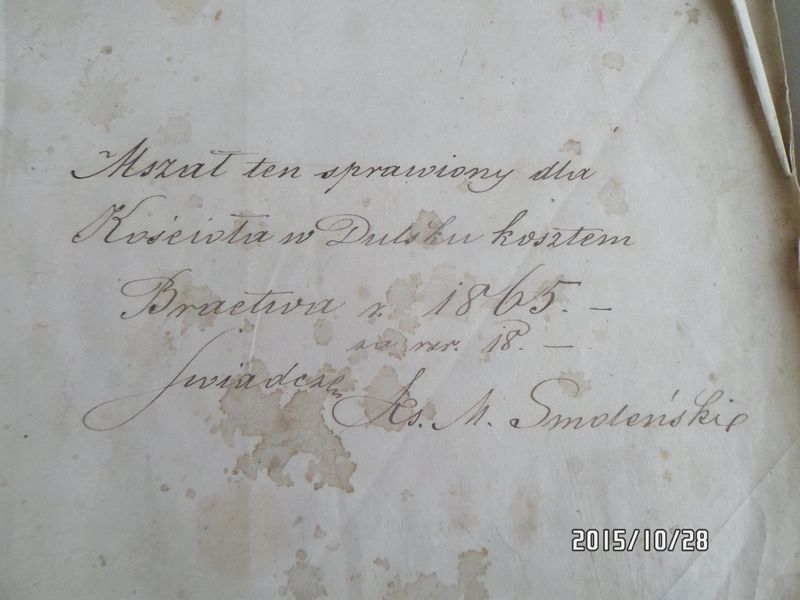 Mszał ten sprawiony dla
Kościoła w Dulsku kosztem
Bractwa r. 1865. –
za rsr. 18. –
Świadczę
Ks. M. Smoleński
2015/10/28